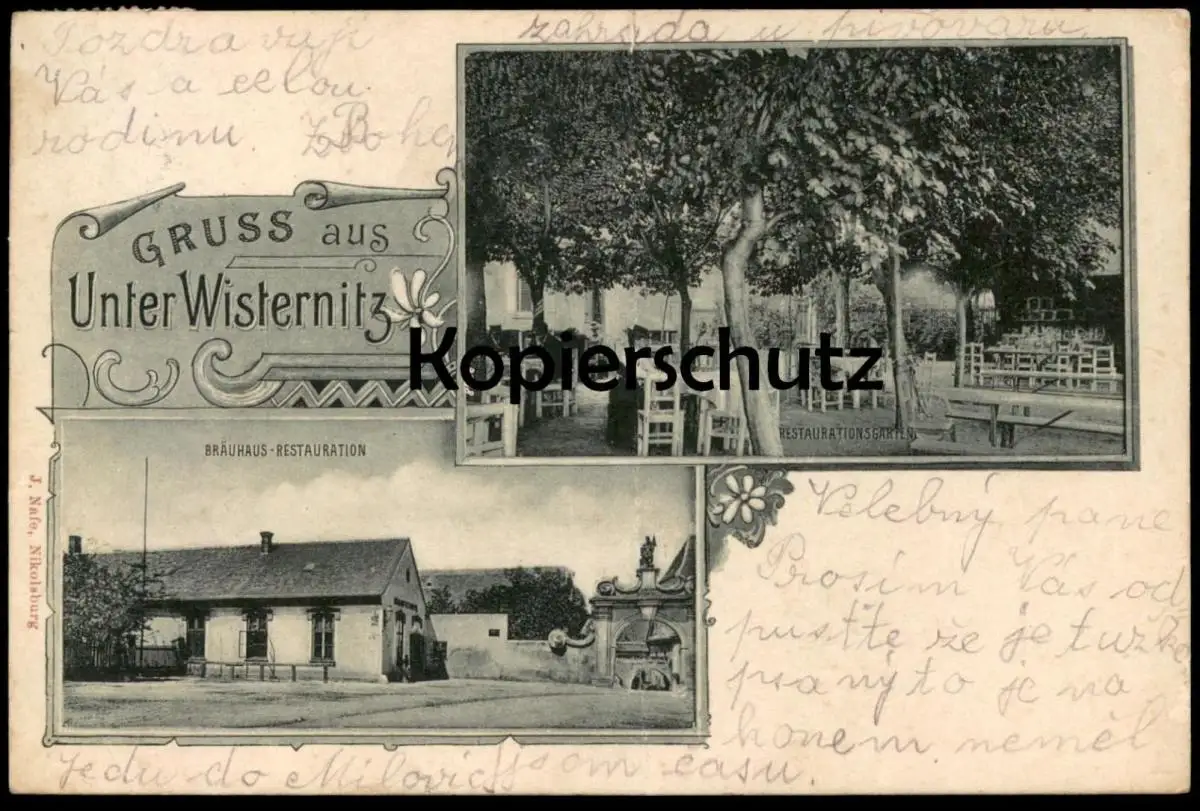 Pozdravuji
Vás a celou
rodinu.
zahrada u pivovaru
GRUSS aus
Unter Wisternitz
Kopierschutz
RESTAURATIONSGARTEN
BRÄUHAUS-RESTAURATION
J. Nafe, Nikolsburg
Velebný pane
Prosím Vás od
pusťte že je tužko
psaný to je na
honem neměl
jsem času.
Jedu do Milovic